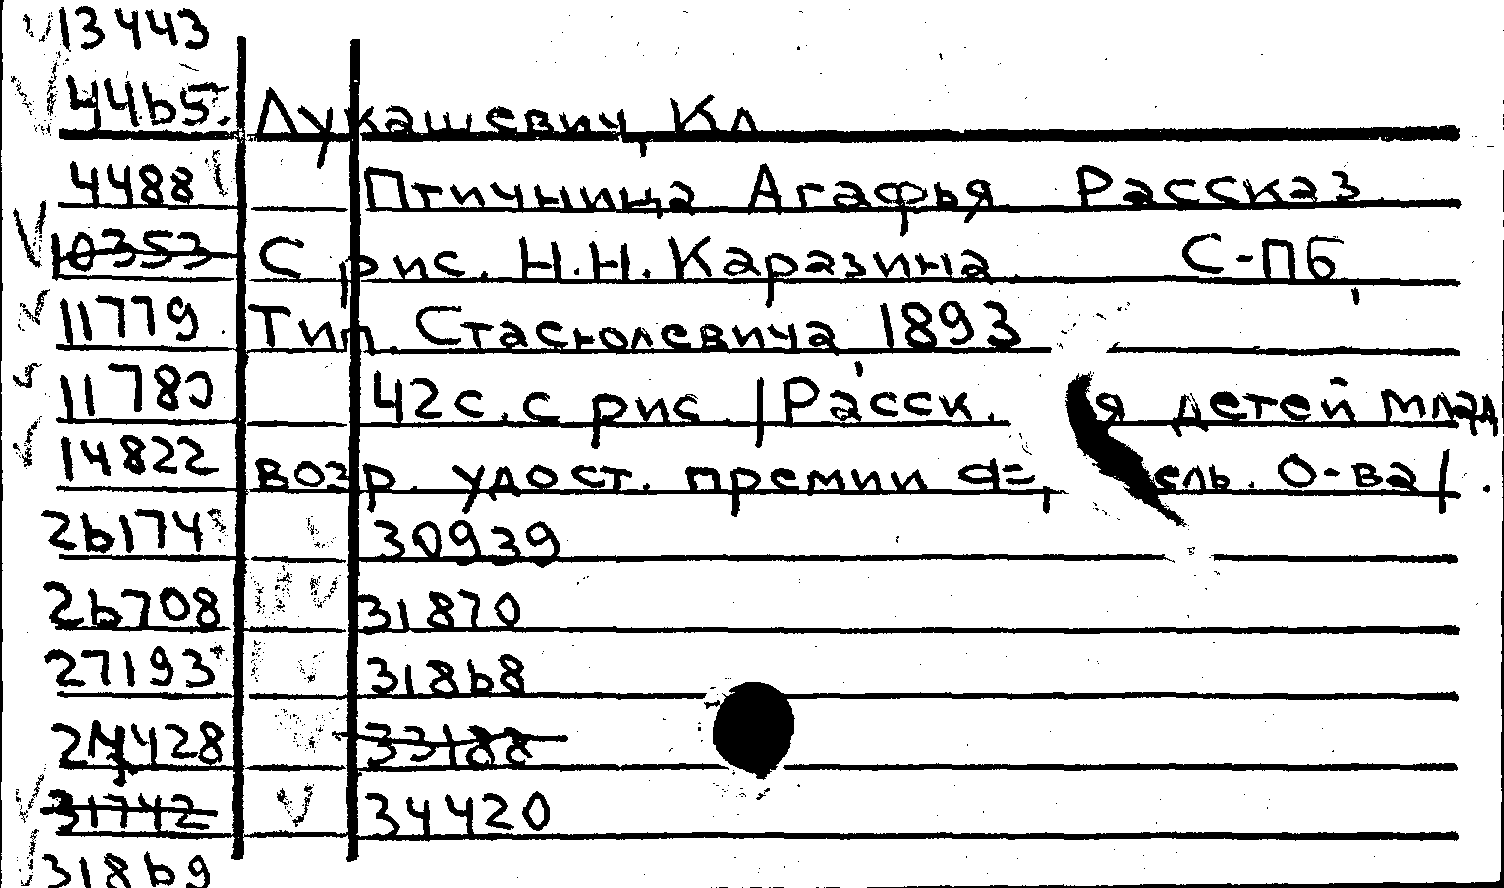 13443
4465. Лукашевич, Кл
4488 Птичница Агафья Рассказ
10353 С рис. Н.Н. Каразина С-ПБ,
11779 Тип. Стасюлевича 1893
11780 42с. с рис /Расск. детей млад
14822 возр. удост. премии О-ва/.
26174 30939
26708 31870
27193 31868
33188
31742 34420
31869